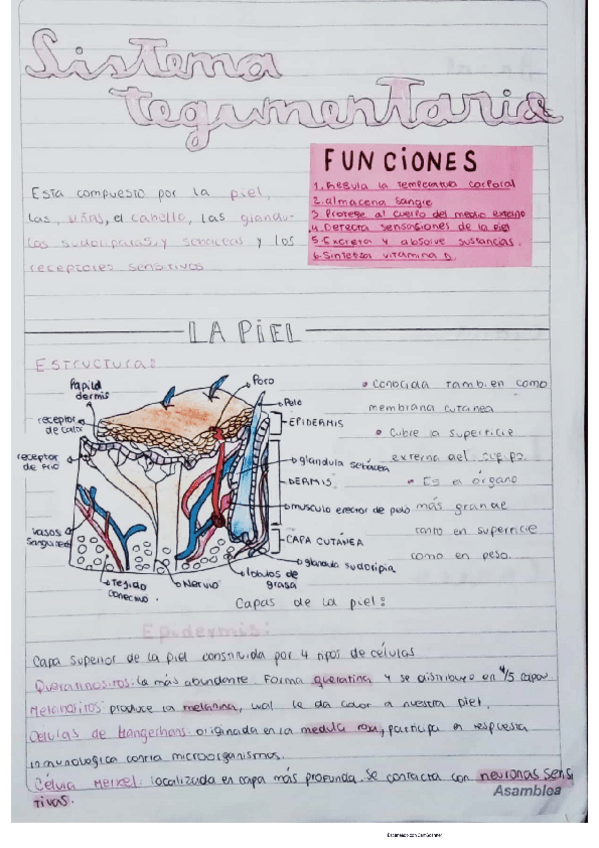 Sistema
tegumentario
FUNCIONES
1. Regula la temperatura corporal
2. almacena sangre
3. Protege al cuerpo del medio externo
4. Detecta sensasiones de la piel
5. Excreta y absolve sustancias.
6. Sintetisa vitamina D.
Esta compuesto por la piel,
las, uñas, el cabello, las glandu-
las sudoriparas, y sebaceas y los
receptores sensitivos
LA PIEL
Estructura:
Papila dermis
receptor de calor
receptor de frio
vasos sanguineos
Tejido conectivo.
Nervio
lobulos de grasa
Poro
Pelo
EPIDERMIS
glandula sebácea
DERMIS
musculo erector de pelo
CAPA CUTÁNEA
glandula sudoripia
• Conocida tambien como
membrana cutanea
• Cubre la superficie
externa del cuerpo
• Es el órgano
más grande
tanto en superficie
como en peso.
Capas de la piel:
Epidermis:
Capa superior de la piel constituida por 4 tipos de células
la más abundante. Forma queratina y se distribuye en 4/5 capas
Melanositos produce la melanina, wal le da color a nuestra piel.
Celulas de Langerhans: originada en la medula roja, participa en respuesta
inmunologica contra microorganismos.
Célula Merkel: localizada en capa más profunda. Se contacta con neuronas sensi
tivas.
Asamblea
Escaneado con CamScanner